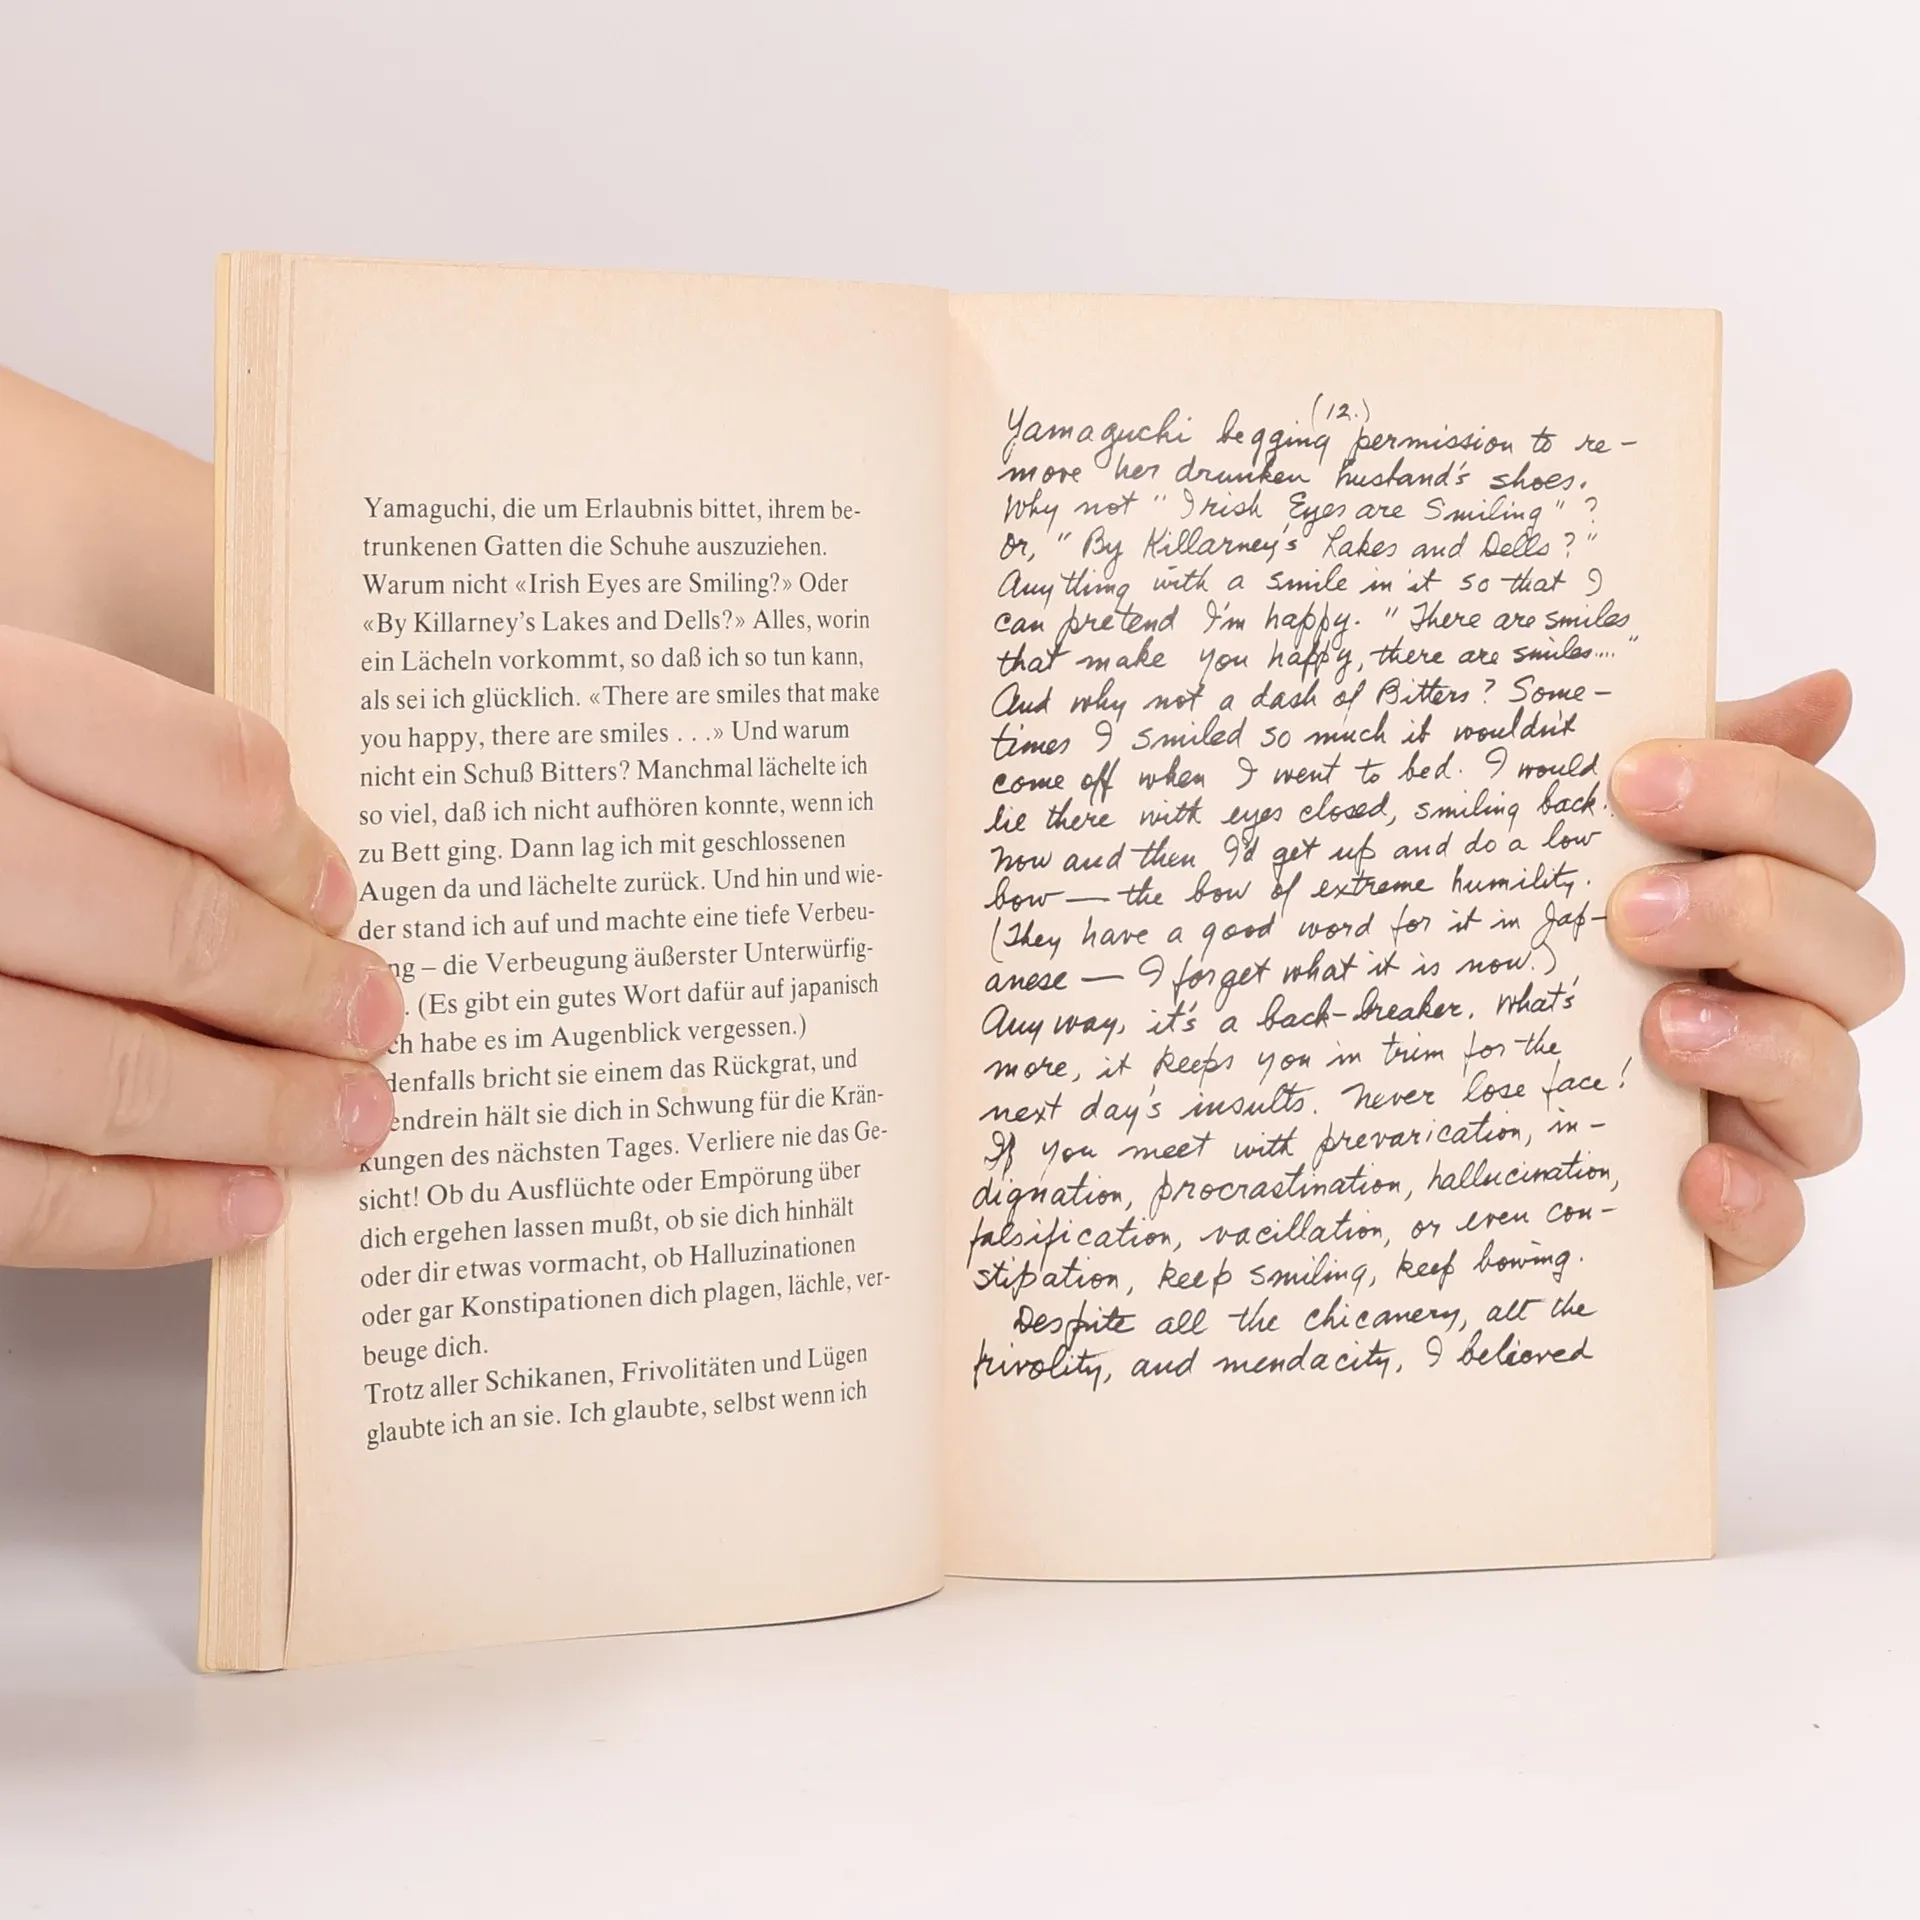 Yamaguchi, die um Erlaubnis bittet, ihrem be-
trunkenen Gatten die Schuhe auszuziehen.
Warum nicht «Irish Eyes are Smiling?» Oder
«By Killarney's Lakes and Dells?» Alles, worin
ein Lächeln vorkommt, so daß ich so tun kann,
als sei ich glücklich. «There are smiles that make
you happy, there are smiles . . .» Und warum
nicht ein Schuß Bitters? Manchmal lächelte ich
so viel, daß ich nicht aufhören konnte, wenn ich
zu Bett ging. Dann lag ich mit geschlossenen
Augen da und lächelte zurück. Und hin und wie-
der stand ich auf und machte eine tiefe Verbeu-
ng – die Verbeugung äußerster Unterwürfig-
. (Es gibt ein gutes Wort dafür auf japanisch
ch habe es im Augenblick vergessen.)
denfalls bricht sie einem das Rückgrat, und
endrein hält sie dich in Schwung für die Krän-
kungen des nächsten Tages. Verliere nie das Ge-
sicht! Ob du Ausflüchte oder Empörung über
dich ergehen lassen mußt, ob sie dich hinhält
oder dir etwas vormacht, ob Halluzinationen
oder gar Konstipationen dich plagen, lächle, ver-
beuge dich.
Trotz aller Schikanen, Frivolitäten und Lügen
glaubte ich an sie. Ich glaubte, selbst wenn ich
(12.)
Yamaguchi begging permission to re-
move her drunken husband's shoes.
Why not "Irish Eyes are Smiling"?
Or, "By Killarney's Lakes and Dells?"
Anything with a smile in it so that I
can pretend I'm happy. "There are smiles
that make you happy, there are smiles...."
And why not a dash of Bitters? Some-
times I smiled so much it wouldn't
come off when I went to bed. I would
lie there with eyes closed, smiling back.
Now and then I'd get up and do a low
bow — the bow of extreme humility.
(They have a good word for it in Jap-
anese — I forget what it is now.)
Anyway, it's a back-breaker. What's
more, it keeps you in trim for the
next day's insults. Never lose face!
If you meet with prevarication, in-
dignation, procrastination, hallucination,
falsification, vacillation, or even con-
stipation, keep smiling, keep bowing.
Despite all the chicanery, all the
frivolity, and mendacity, I believed